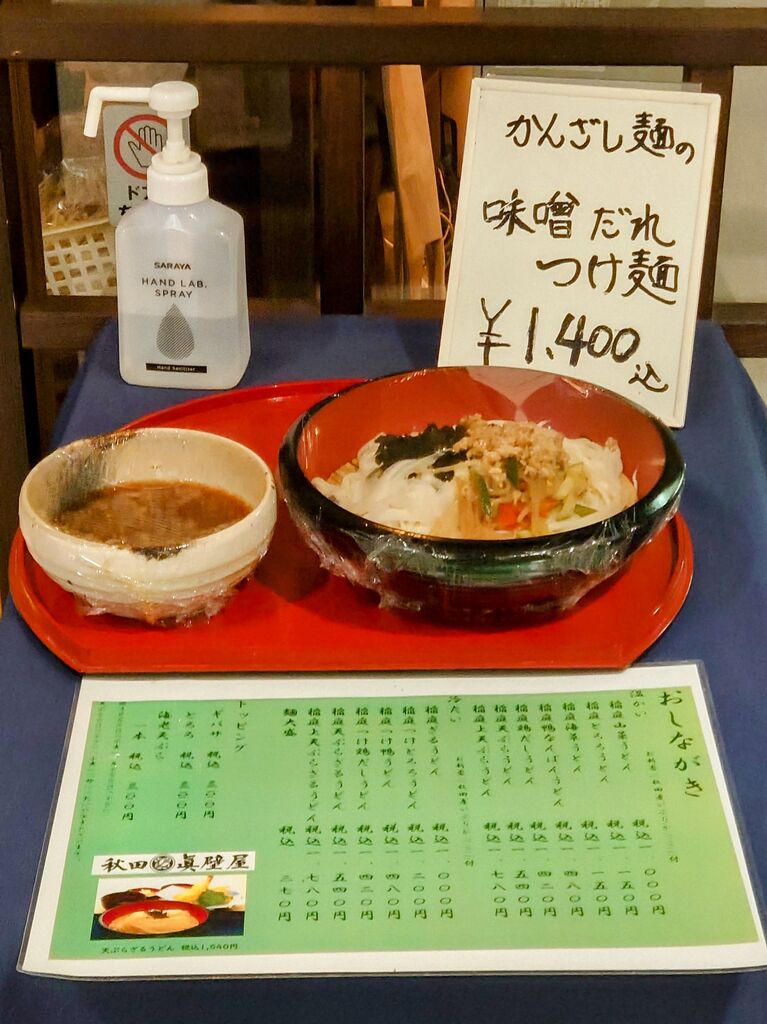 SARAYA
HAND LAB.
SPRAY
Hand Sanitizer
かんざし麺の
味噌だれ
つけ麺
¥1,400込
おしながき
温かい
稲庭山菜うどん 税込一、〇〇〇円
稲庭とろろうどん 税込一、一五〇円
稲庭海草うどん 税込一、一五〇円
稲庭鴨なんばんうどん 税込一、四八〇円
稲庭鶏だしうどん 税込一、四二〇円
稲庭天ぷらうどん 税込一、五四〇円
稲庭上天ぷらうどん 税込一、七八〇円
冷たい
稲庭ざるうどん 税込一、〇〇〇円
稲庭つけとろろうどん 税込一、二〇〇円
稲庭つけ鴨うどん 税込一、四八〇円
稲庭つけ鶏だしうどん 税込一、四二〇円
稲庭天ぷらざるうどん 税込一、五四〇円
稲庭上天ぷらざるうどん 税込一、七八〇円
麺大盛 税込 三七〇円
トッピング
ギバサ 税込 三〇〇円
とろろ 税込 三〇〇円
海老天ぷら
一本 税込 三〇〇円
秋田 眞壁屋
天ぷらざるうどん 税込1,540円